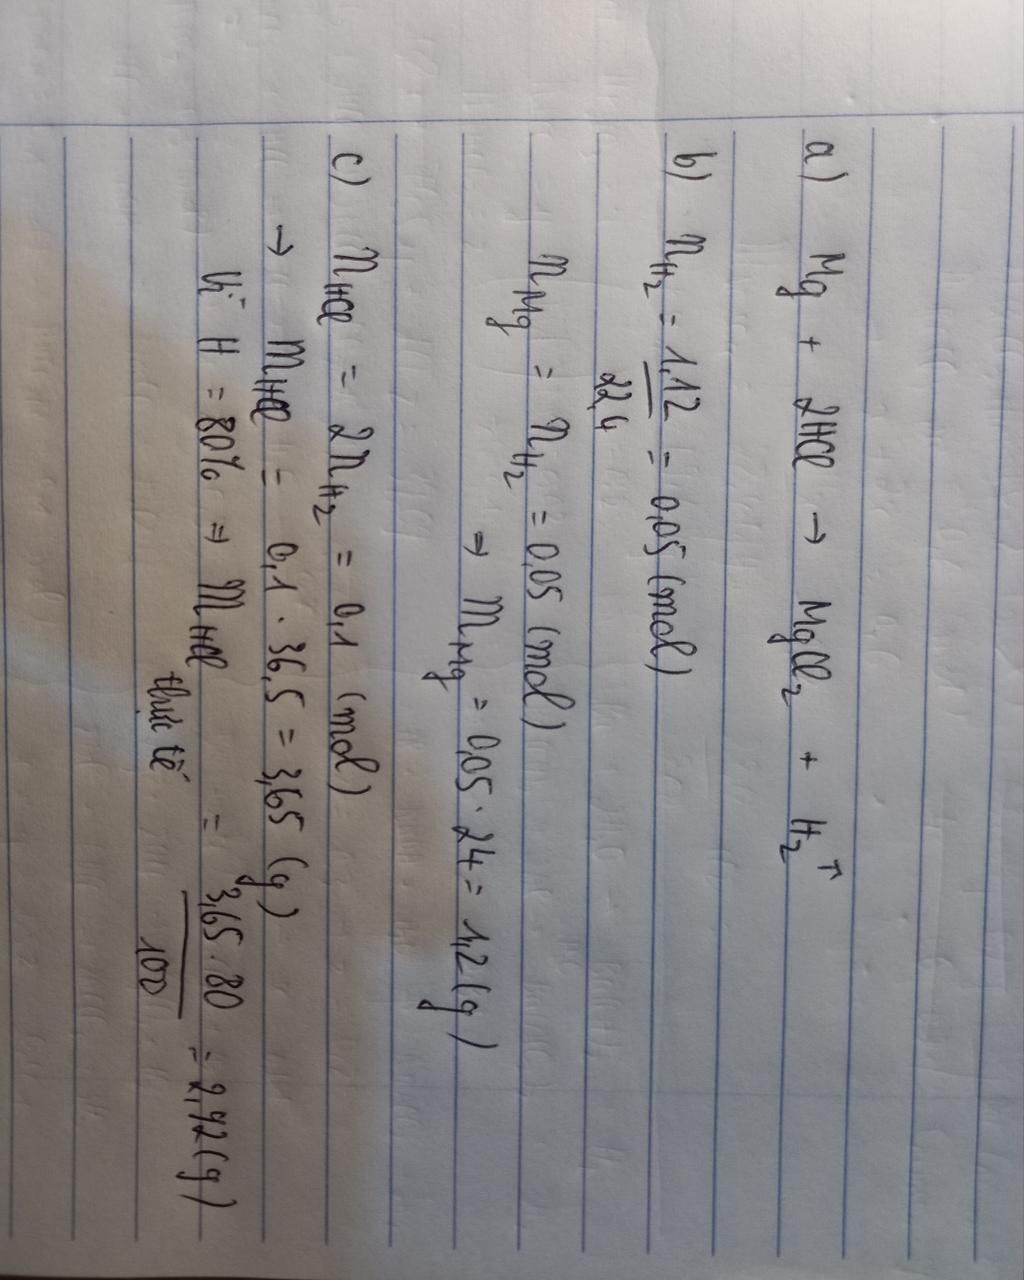 a) Mg + 2HCl → MgCl₂ + H₂↑
b) n_H₂ = 1,12/22,4 = 0,05 (mol)
n_Mg = n_H₂ = 0,05 (mol)
⇒ m_Mg = 0,05 . 24 = 1,2 (g)
c) n_HCl = 2n_H₂ = 0,1 (mol)
→ m_HCl = 0,1 . 36,5 = 3,65 (g)
Vì H = 80% ⇒ m_HCl thực tế = 3,65 . 80/100 = 2,92 (g)